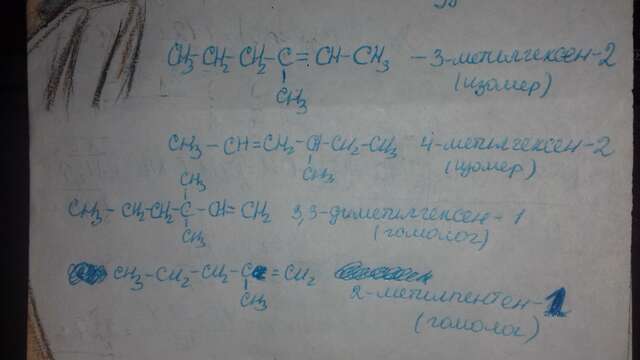 CH3-CH2-CH2-C=CH-CH3 – 3-метилгексен-2
CH3
(изомер)
CH3-CH=CH2-CH-CH2-CH3 4-метилгексен-2
CH3
(изомер)
CH3
CH3-CH2CH2C-CH=CH2 3,3-диметилгексен-1
CH3
(гомолог)
CH3-CH2-CH2-C=CH2
CH3
2-метилпентен-1
(гомолог)